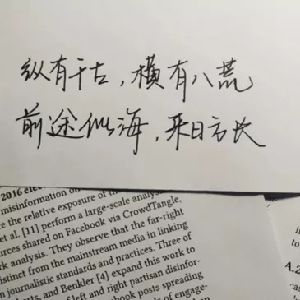 纵有千古，横有八荒
前途似海，来日方长
2016 elec
misinformation on
the relative exposure of the
et al. [11] perform a large-scale analys
urces shared on Facebook via CrowdTangle,
rk analysis. They observe that the far-right
istinct from the mainstream media in linking
n journalistic standards and practices. Three of
arts, and Benkler [4] expand this work to
left and right partisan disinfor-
book posts spreading
of engage-
A.2